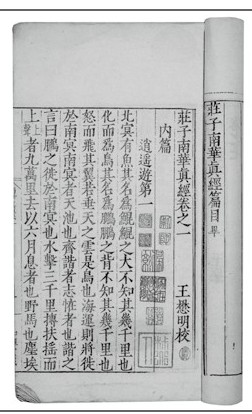 莊子南華真經篇目畢
莊子南華真經卷之一 王懋明校
內篇
逍遙遊第一
北冥有魚其名爲鯤鯤之大不知其幾千里也
化而爲鳥其名爲鵬鵬之背不知其幾千里也
怒而飛其翼若垂天之雲是鳥也海運則將徙
於南冥南冥者天池也齊諧者志怪者也諧之
言曰鵬之徙於南冥也水擊三千里摶扶搖而
上上聲者九萬里去以六月息者也野馬也塵埃